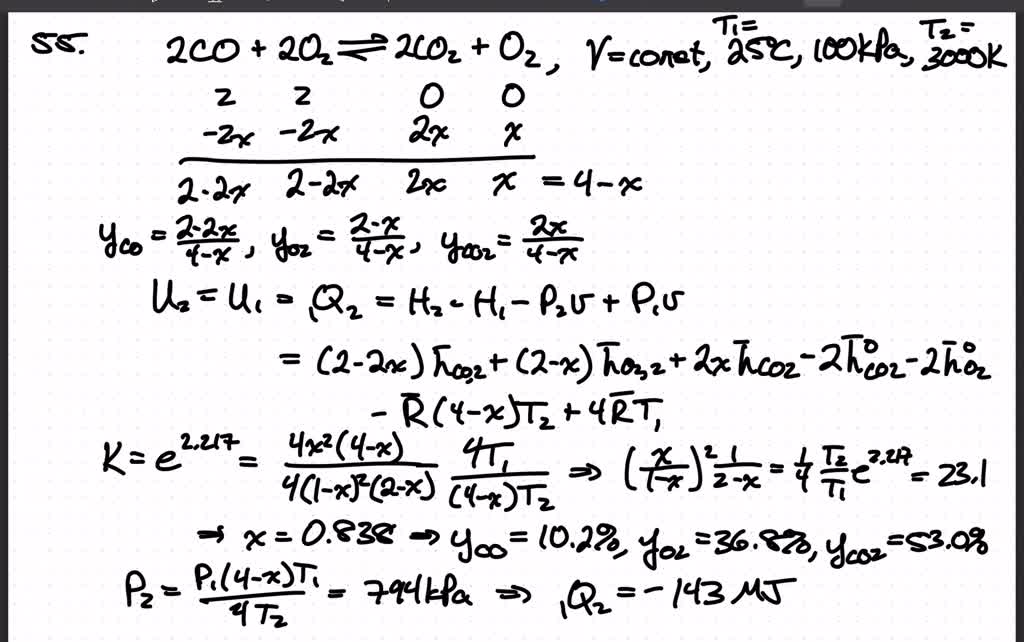 55. 2CO + 2O₂ ⇌ 2CO₂ + O₂, V=const, T₁= 25°C, 100kPa, T₂= 3000K
2 2 0 0
-2x -2x 2x x
2-2x 2-2x 2x x = 4-x
y_CO = (2-2x)/(4-x), y_O2 = (2-x)/(4-x), y_CO2 = 2x/(4-x)
U₂ = U₁ = ₁Q₂ = H₂ - H₁ - P₂v + P₁v
= (2-2x) h̄_CO,2 + (2-x) h̄_O2,2 + 2x h̄_CO2 - 2h̄°_CO2 - 2h̄°_O2
- R̄(4-x)T₂ + 4R̄T₁
K = e^2.217 = (4x²(4-x))/(4(1-x)²(2-x)) (4T₁)/((4-x)T₂) ⇒ (x/(1-x))² 1/(2-x) = 1/4 T₂/T₁ e^2.217 = 23.1
⇒ x = 0.838 ⇒ y_CO = 10.2%, y_O2 = 36.8%, y_CO2 = 53.0%
P₂ = (P₁(4-x)T₁)/(4T₂) = 794kPa ⇒ ₁Q₂ = -143 MJ